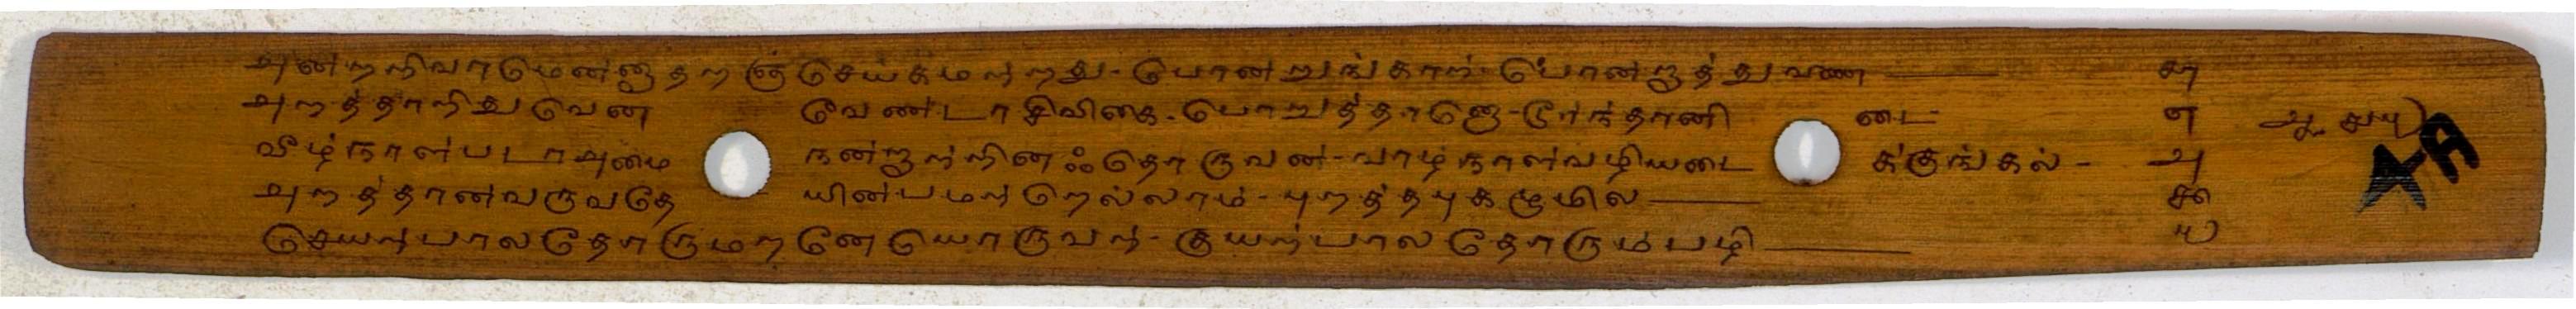 அன்றறிவாமென்னுதறஞ்செய்கமற்றது - பொன்றுங்காற் - பொன்றாத்துணை —— ௬
அறத்தாறிதுவென வேண்டா சிவிகை - பொறுத்தானொ - டூர்ந்தானி டை ௭ ஆ ௪௰
வீழ்நாள்படாஅமை நன்றாற்றினஃதொருவன் - வாழ்நாள்வழியடை க்குங்கல் - ௮
அறத்தான்வருவதே யின்பமற்றெல்லாம் - புறத்தபுகழுமில —— ௯
செயற்பாலதோருமறனேயொருவற் - குயற்பாலதோரும்பழி —— ௰